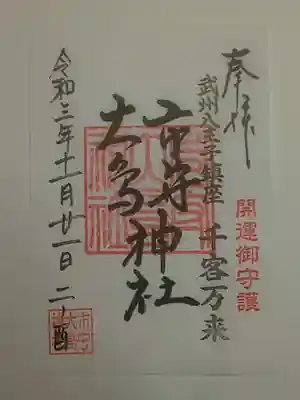 奉拝
開運御守護
武州八王子鎮座 千客万来
市守
大鳥神社
令和三年十一月廿一日 二の酉